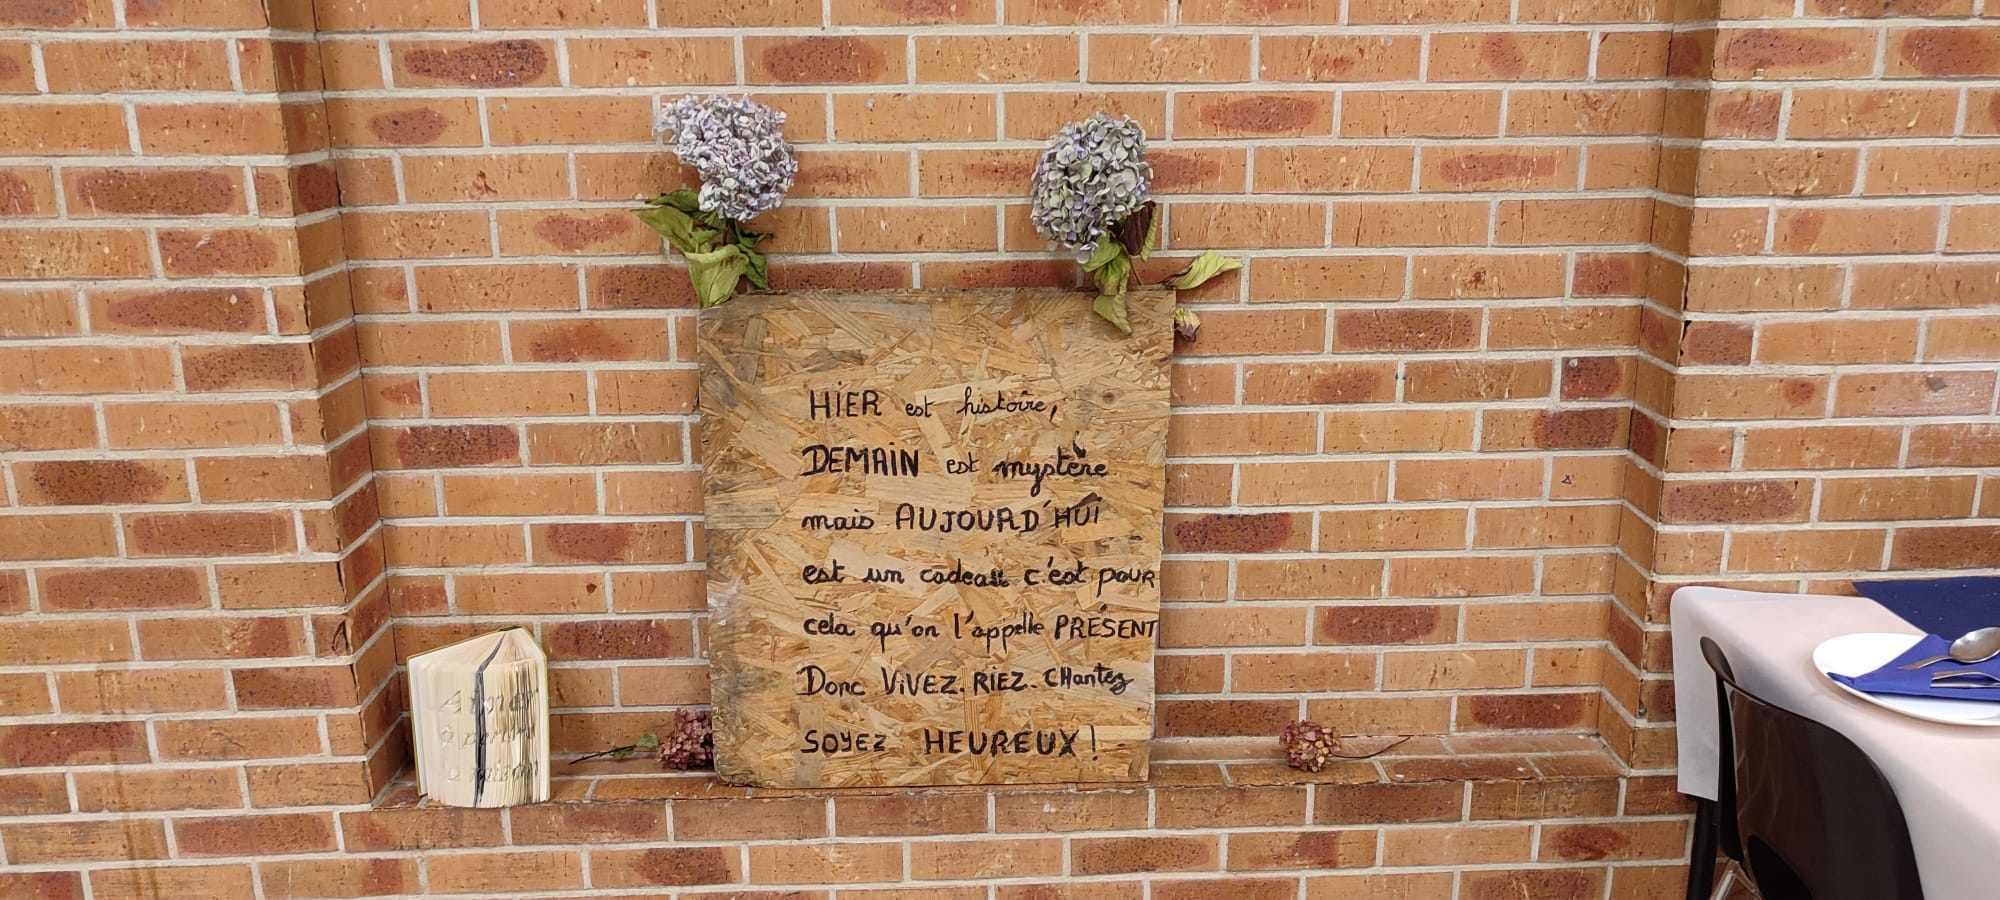 HIER est histoire,
DEMAIN est mystère
mais AUJOURD'HUI
est un cadeau c'est pour
cela qu'on l'appelle PRÉSENT
Donc VIVEZ. RIEZ. CHantez
SOYEZ HEUREUX!
Aimer
à perdre
la raison